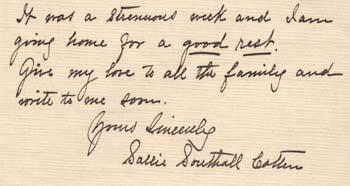 It was a strenuous week and I am
going home for a good rest.
Give my love to all the family and
write to me soon.
Yours Sincerely
Sallie Southall Cotten